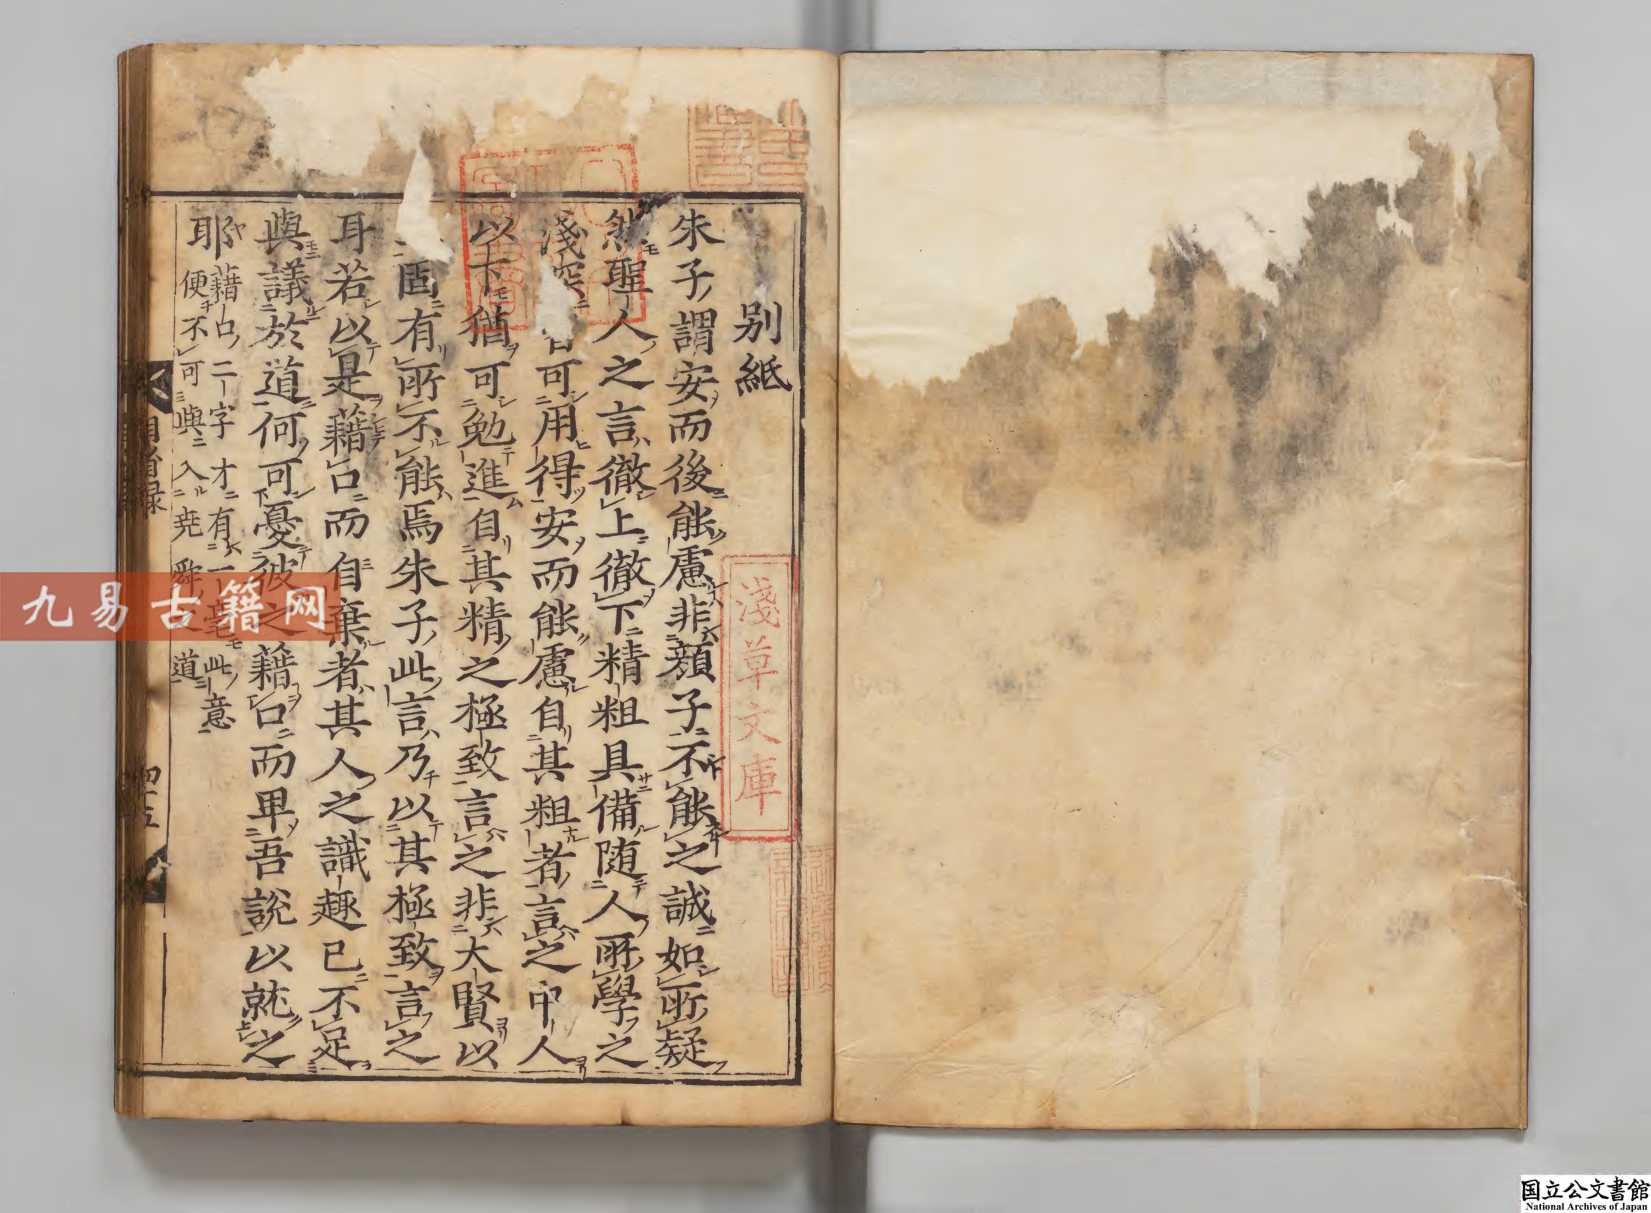 別紙
朱子謂安而後能慮非顔子不能之誠如所疑
然聖人之言徹上徹下精粗具備随人所學之
淺深皆可用得安而能慮自其粗者言之中人
以下猶可勉進自其精之極致言之非大賢以
固有所不能焉朱子此言乃以其極致言之
耳若以是藉口而自棄者其人之識趣已不足
與議於道何可憂彼之藉口而卑吾說以就之
耶藉口二字才有一毫此意
便不可與入堯舜之道
自省録
四十五
淺草文庫
九易古籍网
国立公文書館
National Archives of Japan